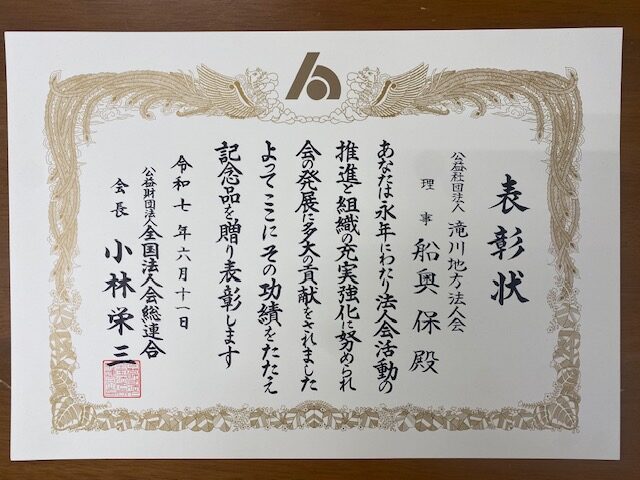 表彰状
公益社団法人 滝川地方法人会
理事 船奥保殿
あなたは永年にわたり法人会活動の
推進と組織の充実強化に努められ
会の発展に多大の貢献をされました
よってここにその功績をたたえ
記念品を贈り表彰します
令和七年六月十一日
公益財団法人全国法人会総連合
会長 小林栄三